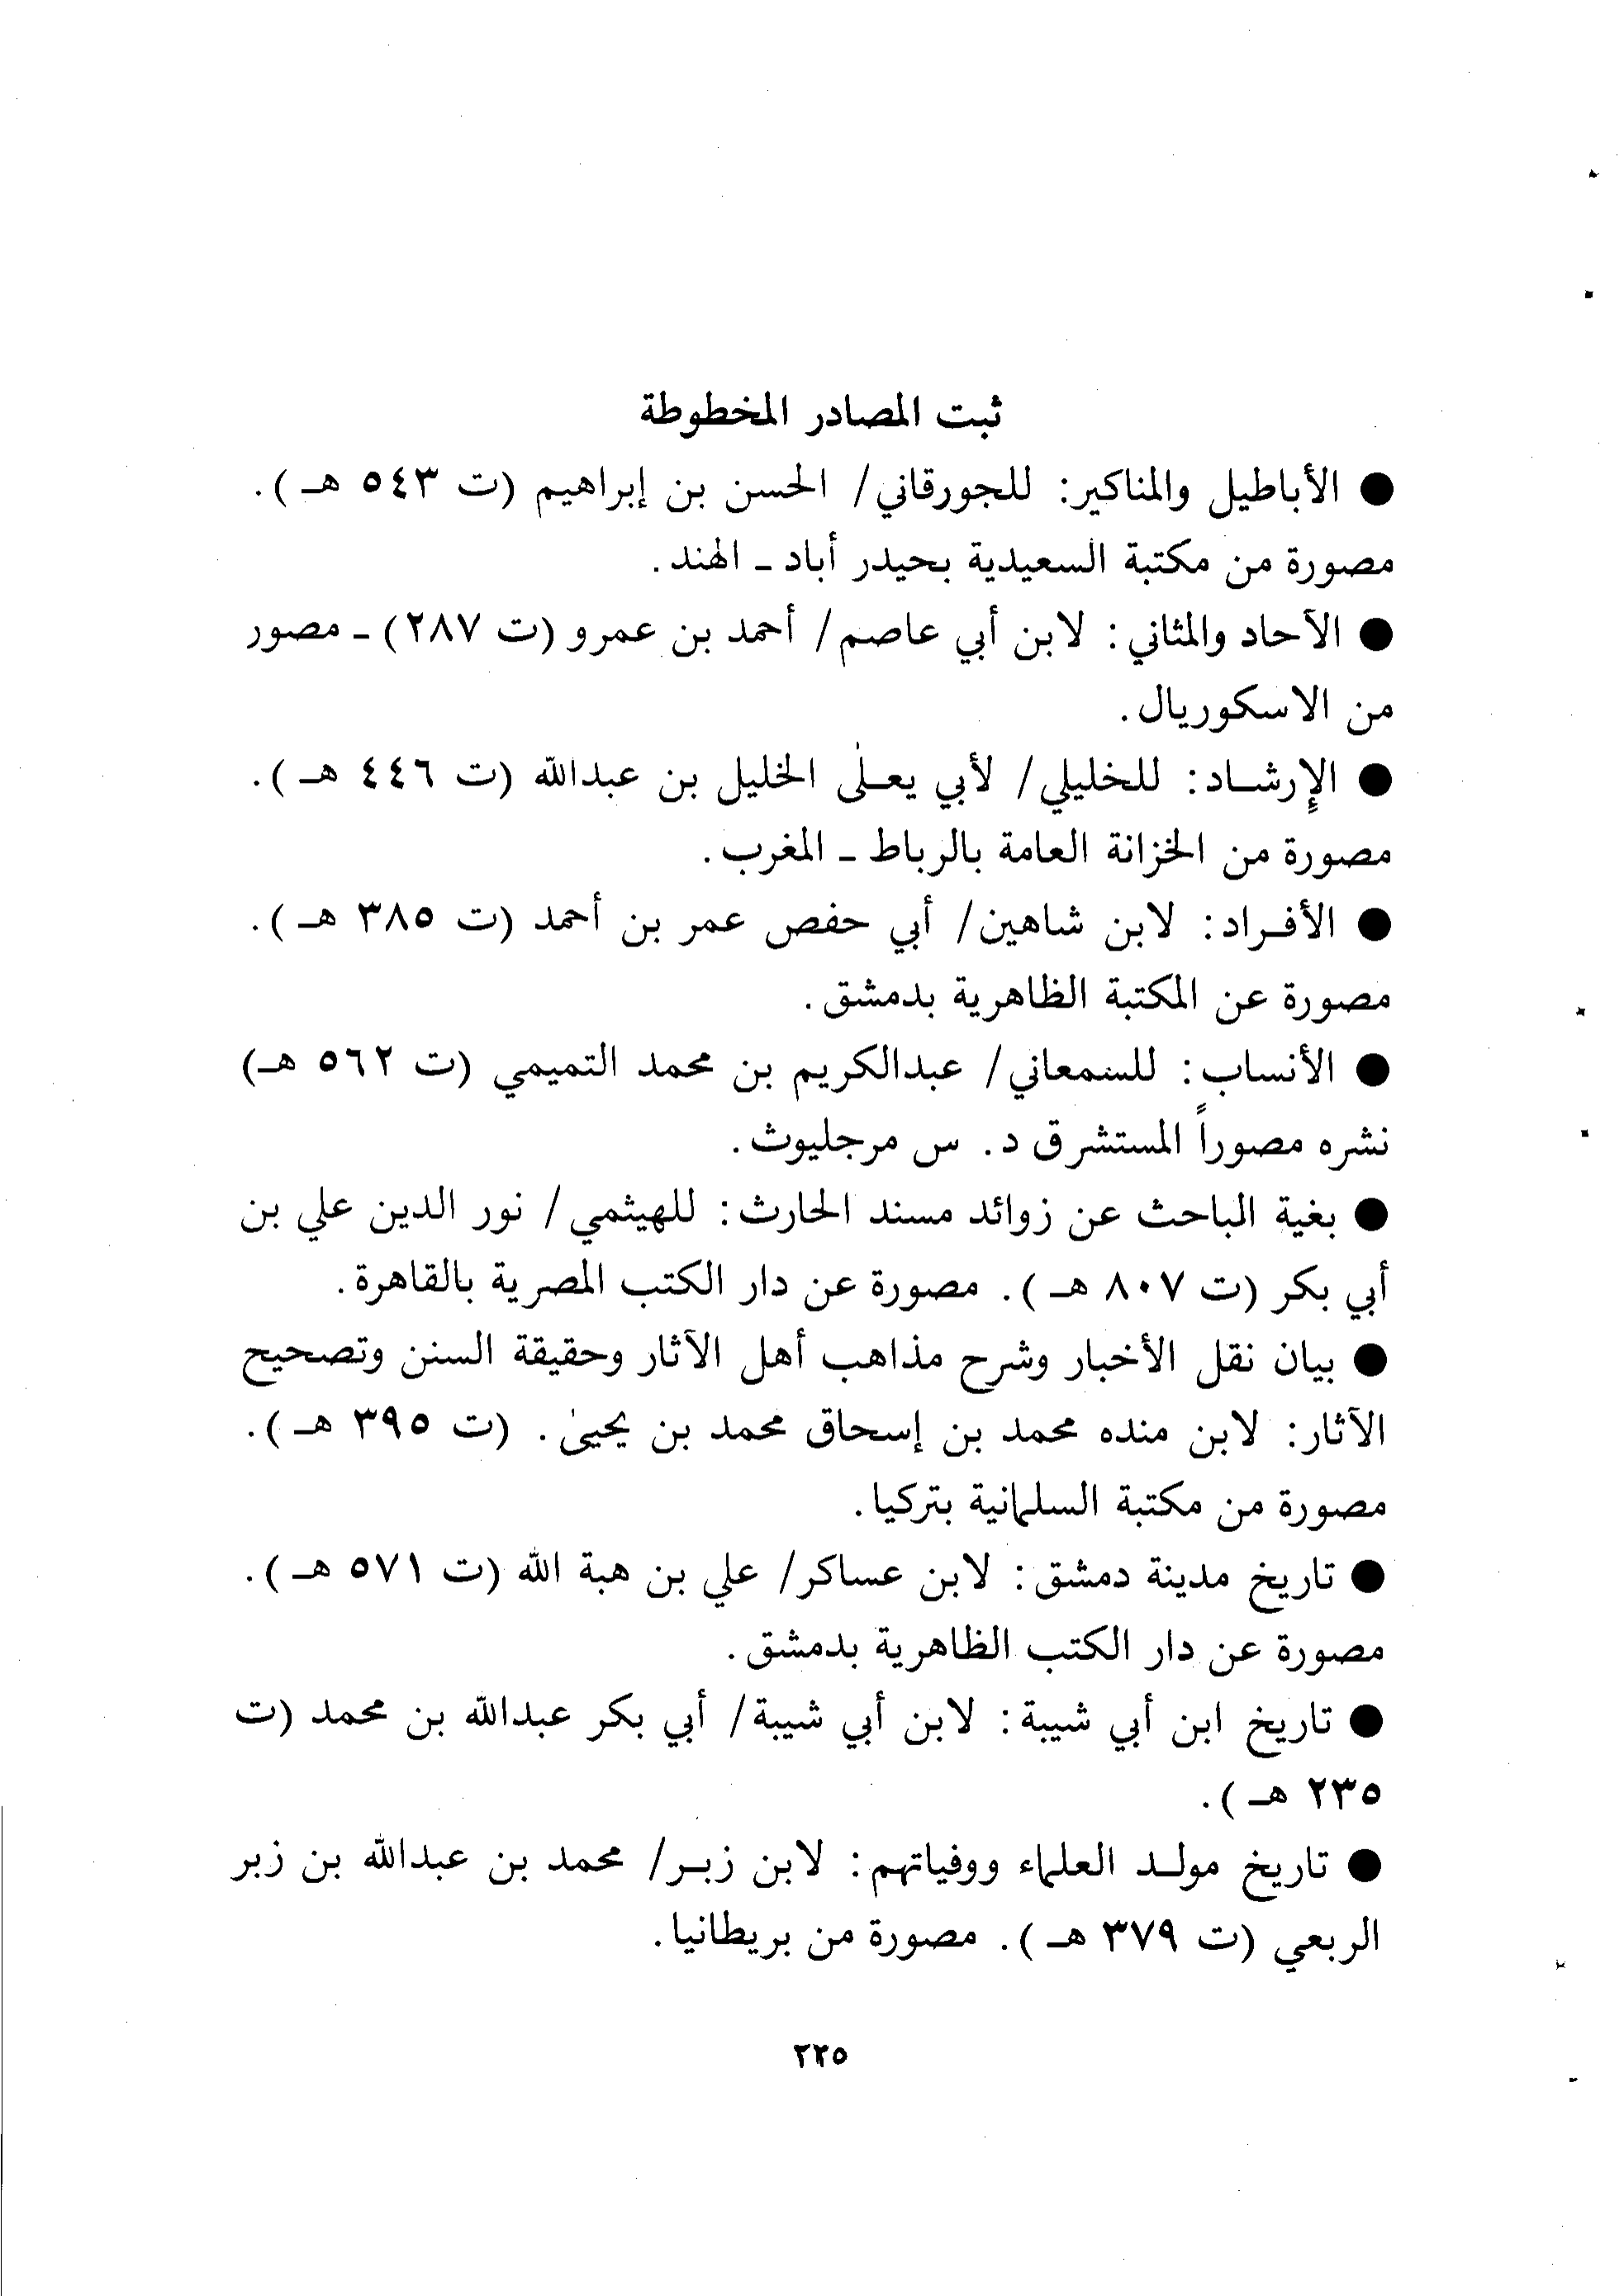 ثبت المصادر المخطوطة
● الأباطيل والمناكير: للجورقاني/ الحسن بن إبراهيم (ت ٥٤٣ هـ).
مصورة من مكتبة السعيدية بحيدر أباد ـ الهند.
● الآحاد والمثاني: لابن أبي عاصم/ أحمد بن عمرو (ت ٢٨٧) ـ مصور
من الاسكوريال.
● الإرشـاد: للخليلي/ لأبي يعـلى الخليل بن عبدالله (ت ٤٤٦ هـ).
مصورة من الخزانة العامة بالرباط ـ المغرب.
● الأفـراد: لابن شاهين/ أبي حفص عمر بن أحمد (ت ٣٨٥ هـ).
مصورة عن المكتبة الظاهرية بدمشق.
● الأنساب: للسمعاني/ عبدالكريم بن محمد التميمي (ت ٥٦٢ هـ)
نشره مصوراً المستشرق د. س مرجليوث.
● بغية الباحث عن زوائد مسند الحارث: للهيثمي/ نور الدين علي بن
أبي بكر (ت ٨٠٧ هـ). مصورة عن دار الكتب المصرية بالقاهرة.
● بيان نقل الأخبار وشرح مذاهب أهل الآثار وحقيقة السنن وتصحيح
الآثار: لابن منده محمد بن إسحاق محمد بن يحيىٰ. (ت ٣٩٥ هـ).
مصورة من مكتبة السلمانية بتركيا.
● تاريخ مدينة دمشق: لابن عساكر/ علي بن هبة الله (ت ٥٧١ هـ).
مصورة عن دار الكتب الظاهرية بدمشق.
● تاريخ ابن أبي شيبة: لابن أبي شيبة/ أبي بكر عبدالله بن محمد (ت
٢٣٥ هـ).
● تاريخ مولـد العلماء ووفياتهم: لابن زبـر/ محمد بن عبدالله بن زبر
الربعي (ت ٣٧٩ هـ). مصورة من بريطانيا.
٢٢٥